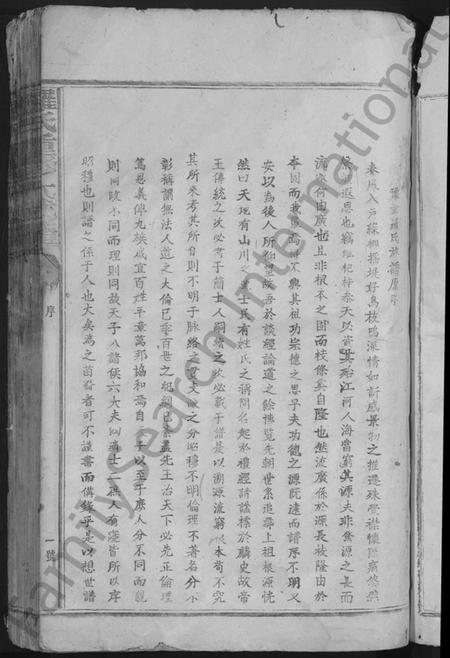 羅氏族譜原序
春風入戶綠柳搖堤好鳥枝鳴派情如訴感景物之推遷殊學襟懷
遐思也竊維杞梓參天以資其始江河入海當窮其源夫非發源之長而
流必有由廣也且非根本之固而枝條奚自隆也然流廣係於源長枝隆由於
本固而我為後不興其祖功宗德之思乎夫功德之源既遠而譜序不明又
安以為後人所仰望故吾於談經論道之餘博覽先朝世系追尋上祖根源恍
然曰天地有山川之土民有姓氏之稱問名起於禮經請諡標於麟史故帝
王傳統之次必考于簡士人嗣緒之必載于譜是以溯源流窮本苟不究
其所來考其所自則不明于脉絡之貫支派之分昭穆不明倫理不著名分
彰稱謂無法人道之大倫已乖百世之紀綱盡先王治天下必先正倫理
篤恩義俾九族咸宜百姓平章萬邦協和焉自天子以至于庶人分不同而親
則同政不同而理則同故天子八諸侯六大夫四適士二庶人有寢皆所以序
昭穆也則譜之係于人也大矣為之苗裔者可不謹書而備錄乎是以想世譜
序
一號
FamilySearch International